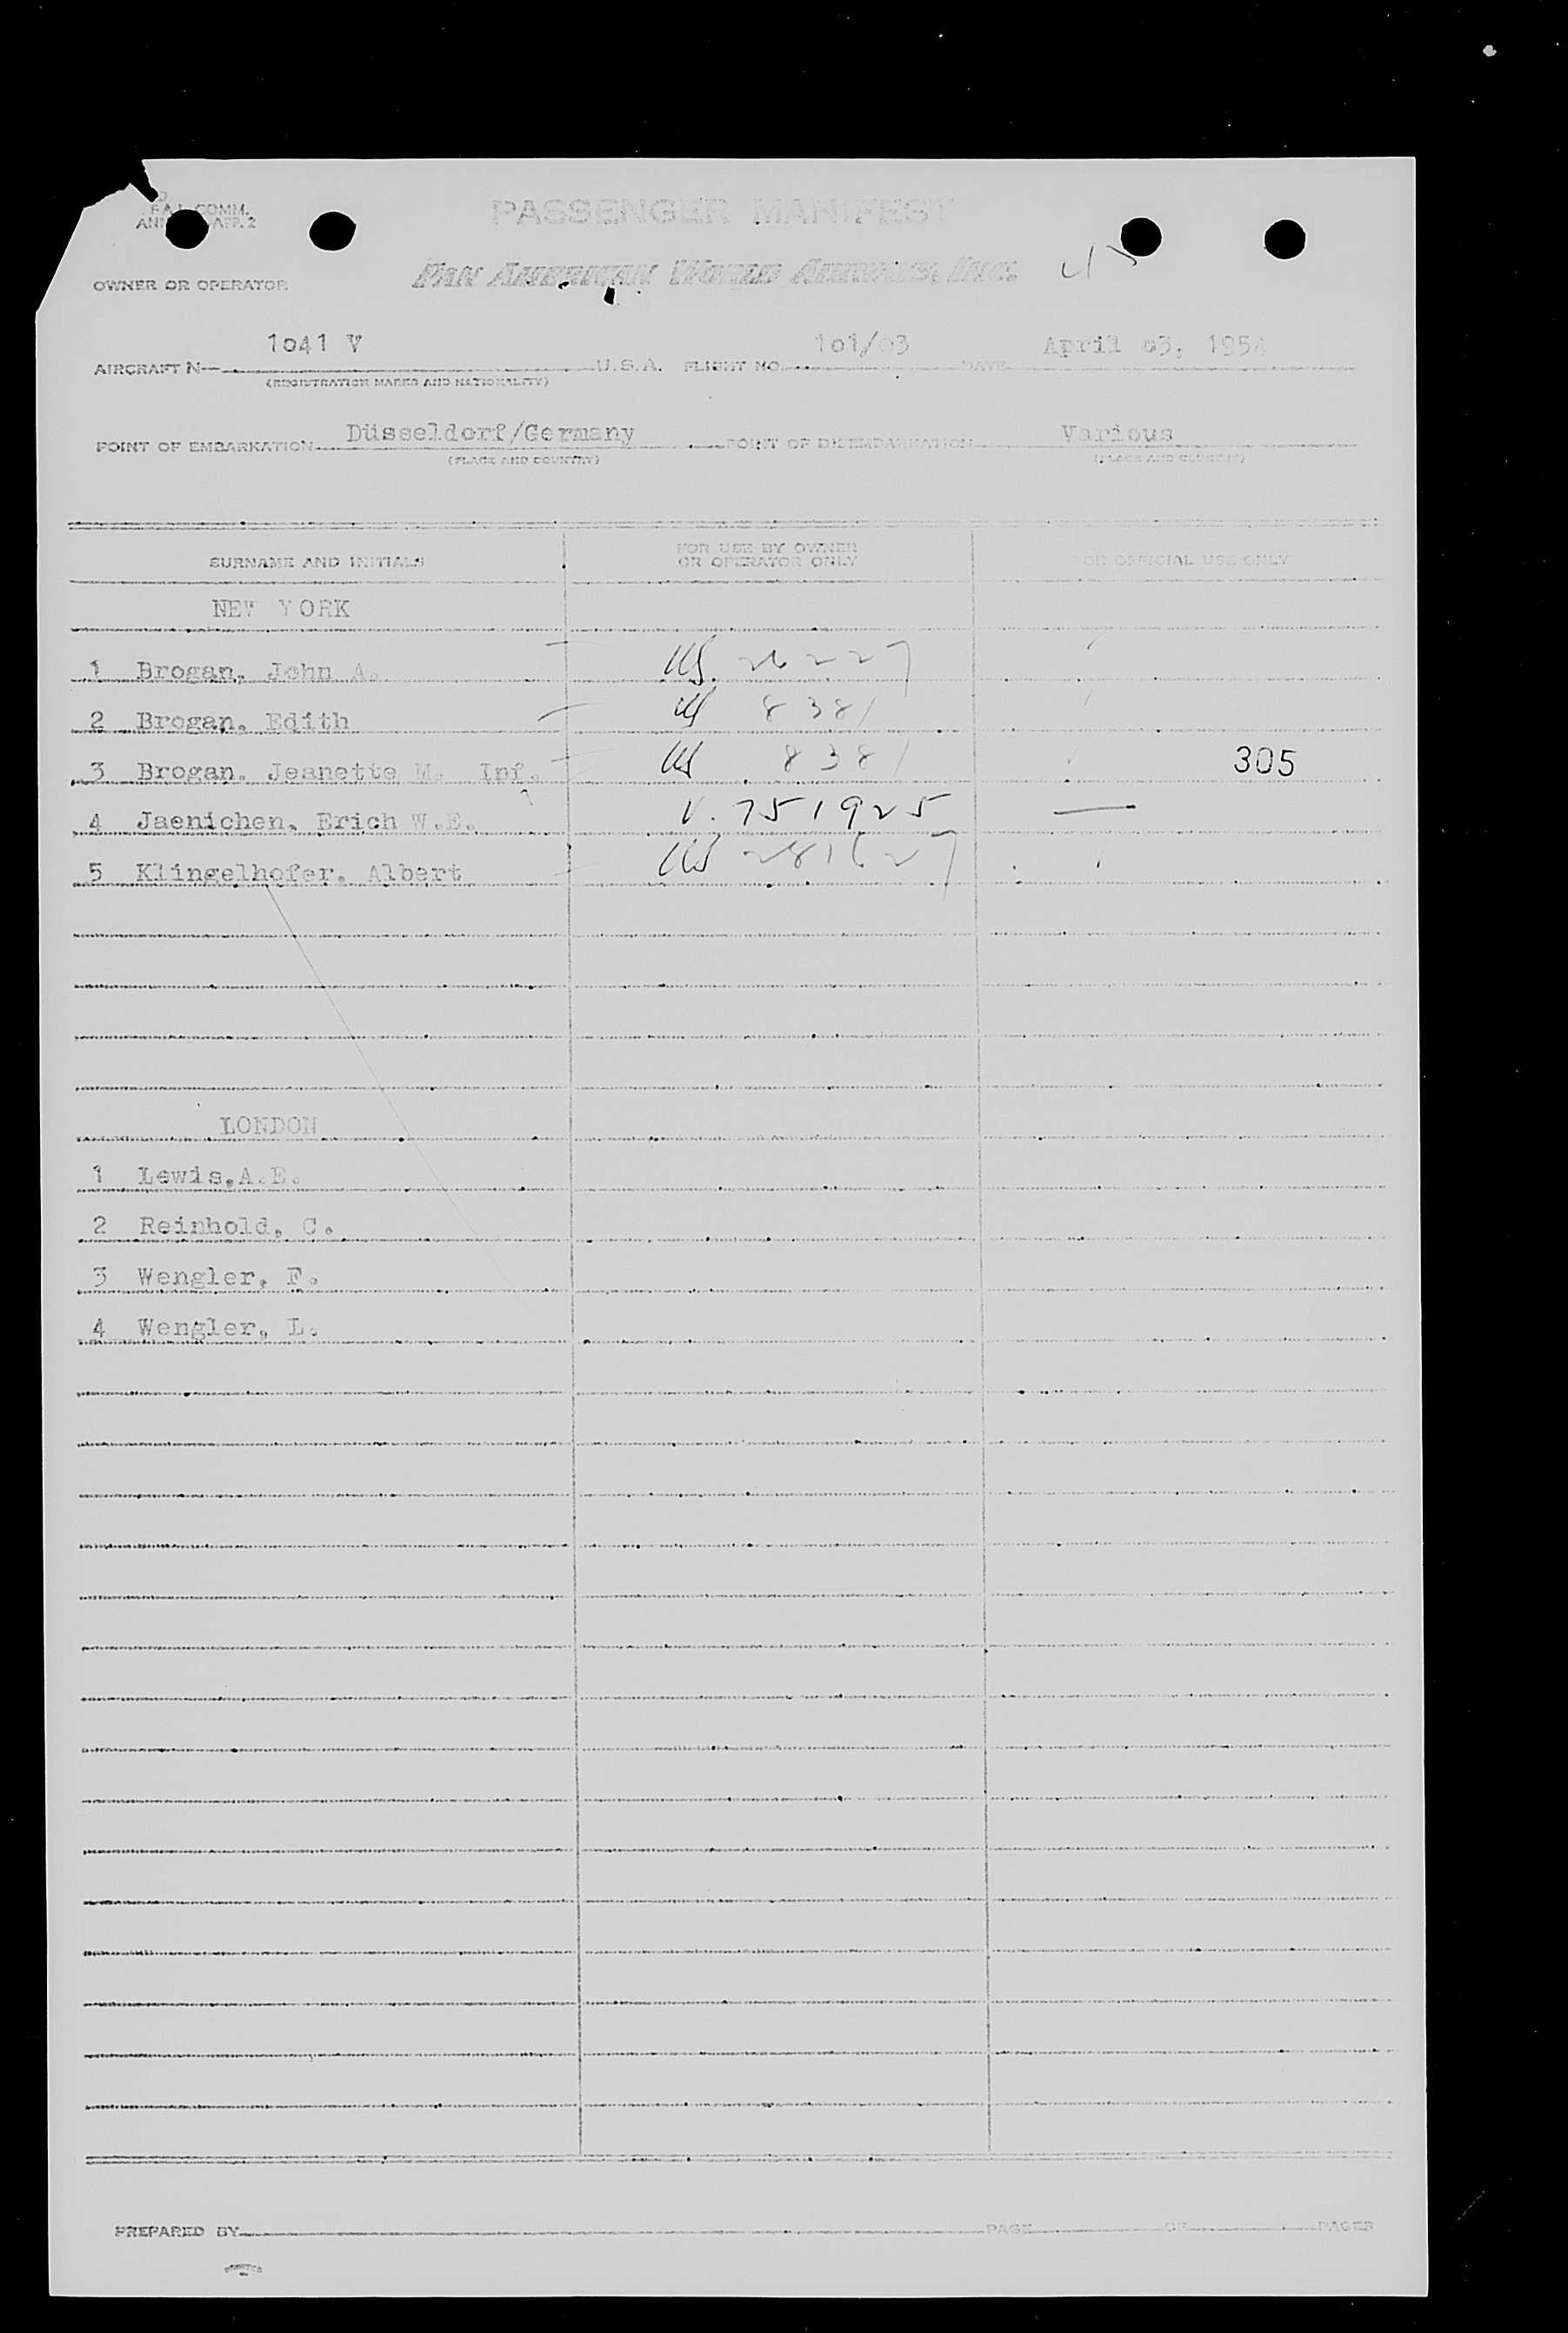 FAL COMM.
APP. 2
PASSENGER MANIFEST
PAN AMERICAN WORLD AIRWAYS, INC.
OWNER OR OPERATOR
1o41 V 1o1/o3 April o3, 1954
AIRCRAFT N U.S.A. FLIGHT NO. DATE
(REGISTRATION MARKS AND NATIONALITY)
Düsseldorf/Germany Various
POINT OF EMBARKATION POINT OF DISEMBARKATION
(PLACE AND COUNTRY) (PLACE AND COUNTRY)
SURNAME AND INITIALS FOR USE BY OWNER OR OPERATOR ONLY FOR OFFICIAL USE ONLY
NEW YORK
1 Brogan, John A. US. 26227
2 Brogan, Edith US 8381
3 Brogan, Jeanette M. Inf. US 8381 305
4 Jaenichen, Erich W.E. V. 751925
5 Klingelhofer, Albert US 281627
LONDON
1 Lewis,A.E.
2 Reinhold, C.
3 Wengler, F.
4 Wengler, L.
PREPARED BY PAGE OF PAGES